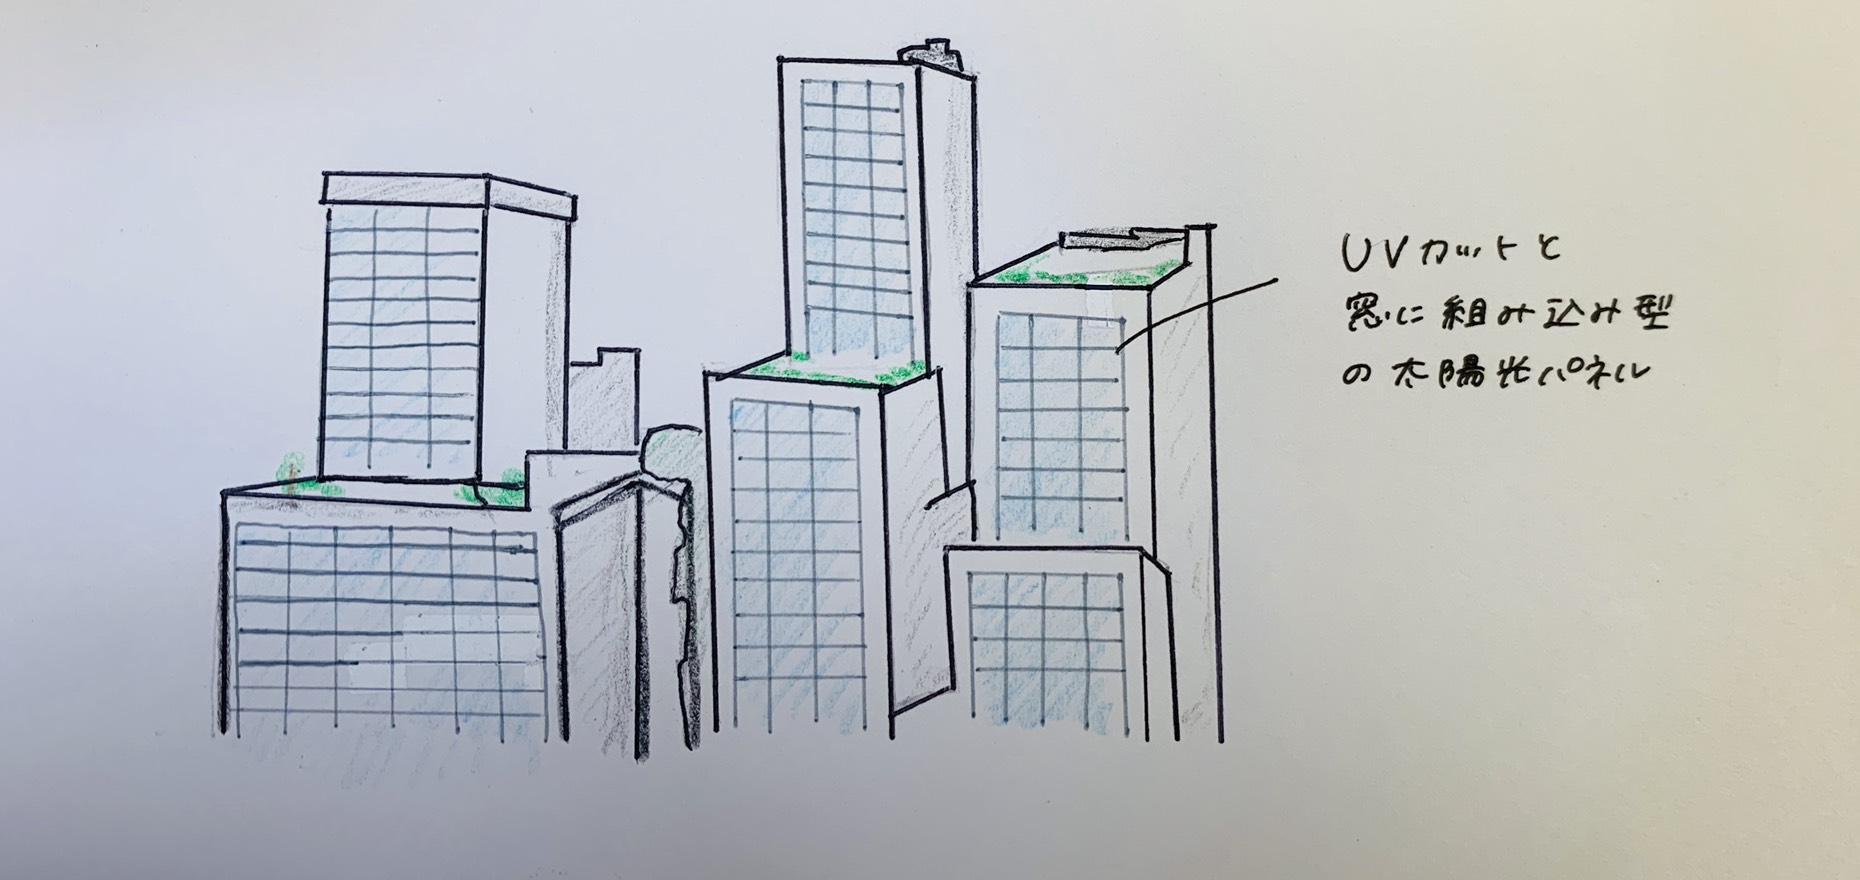 UVカットと
窓に組み込み型
の太陽光パネル